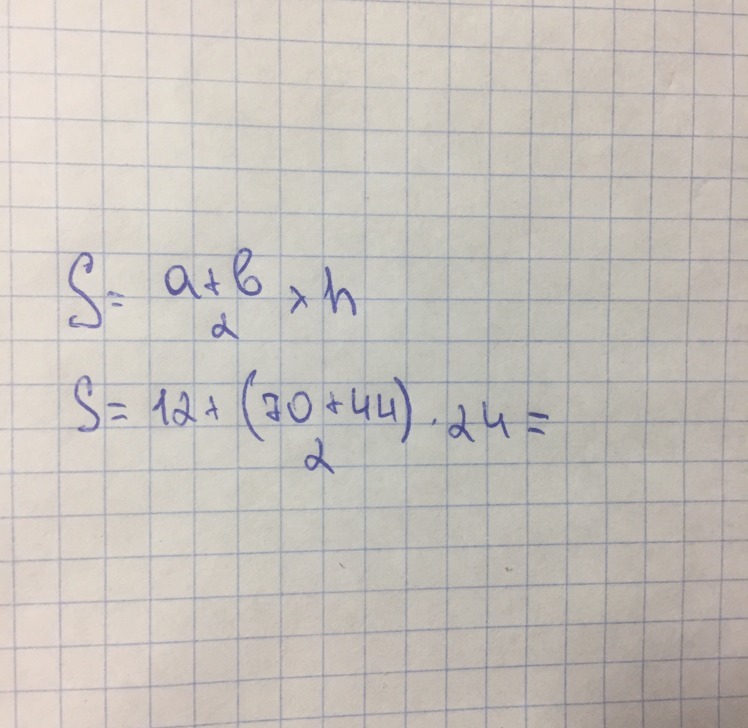 S = a+b/2 × h
S = 12 + (70+44)/2 · 24 =